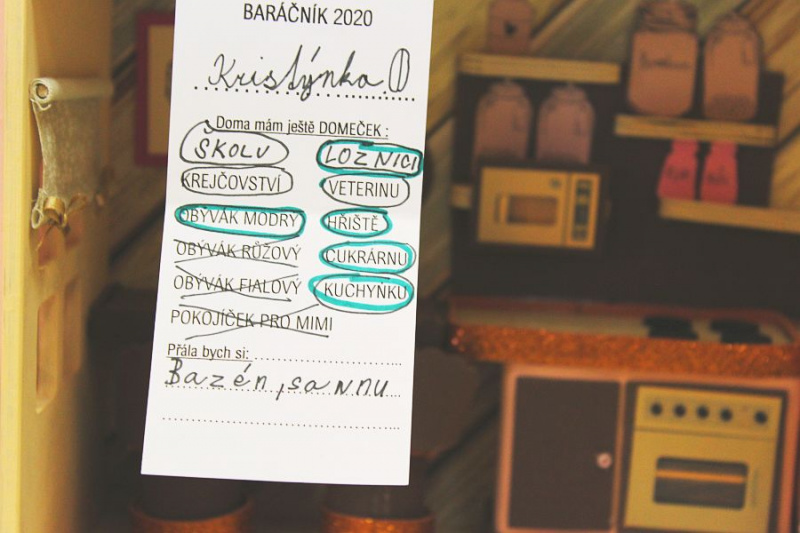 BARÁČNÍK 2020
Kristýnka
Doma mám ještě DOMEČEK :
ŠKOLU LOZNICI
KREJČOVSTVÍ VETERINU
OBÝVÁK MODRY HŘIŠTĚ
OBÝVÁK RŮŽOVÝ CUKRÁRNU
OBÝVÁK FIALOVÝ KUCHYŇKU
POKOJÍČEK PRO MIMI
Přála bych si:
Bazén, sannu